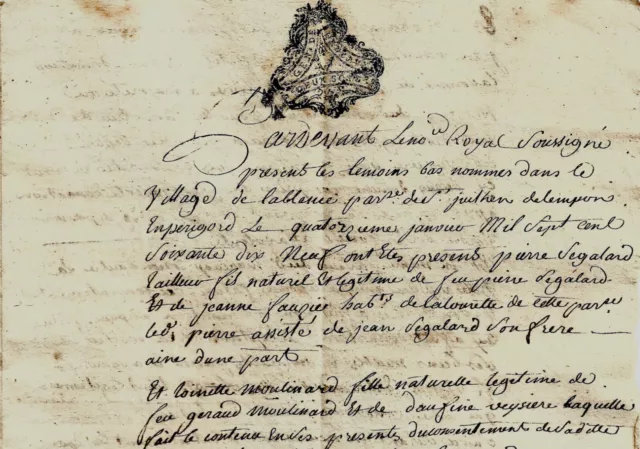 Pardevant Le no.re Royal Soussigné
present les temoins bas nommes dans le
Village de lablanie par.se de S.t julhen de lempon
En perigord Le quatorzieme janvier Mil Sept Cent
Soixante dix Neuf ont Etes present pierre Segalard
tailleur fil naturel Et legitime de feu pierre Segalard
Et de jeanne fauzie hab.ts de la lourette de cette par.se
led.t pierre assiste de jean Segalard Son frere
aine dune part
Et toinette Moulinard fille naturelle legitime de
feu geraud Moulinard Et de daufine veysiere laquelle
fait le contenu En Ses presents du consentement de Saditte